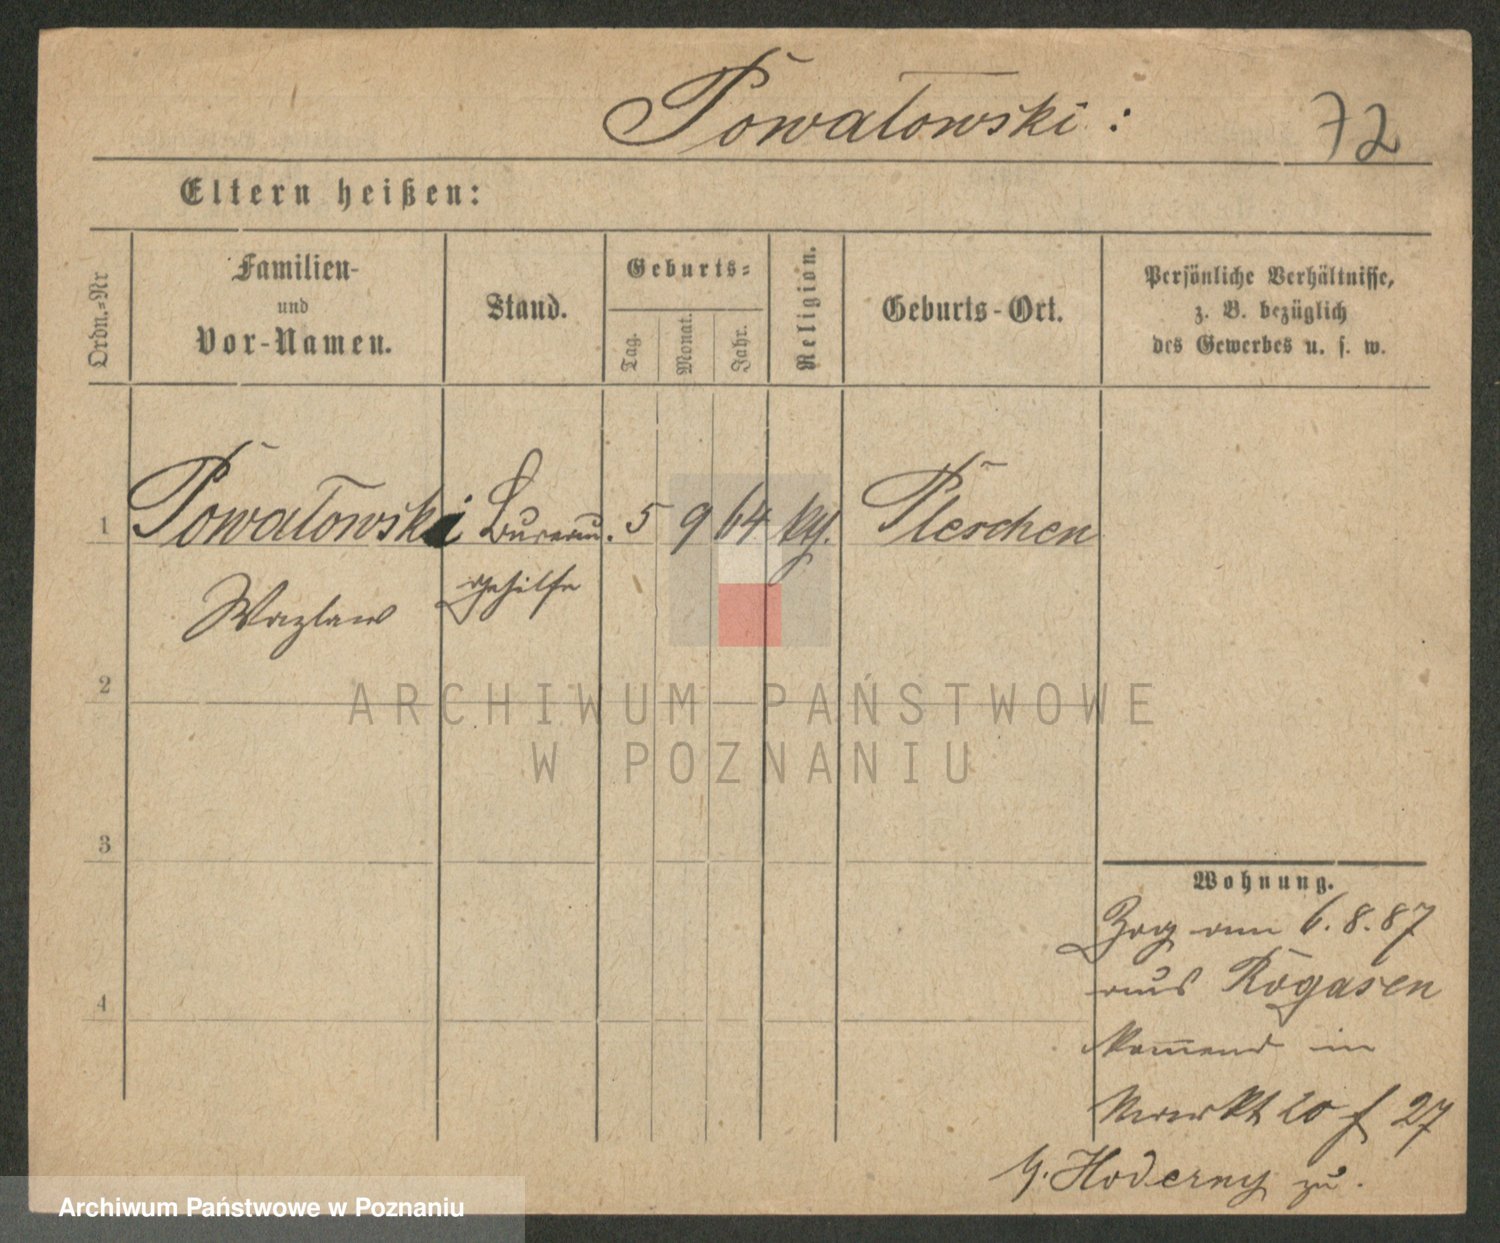 Powałowski :
72
Eltern heißen:
Ordn.-Nr
Familien-
und
Vor-Namen.
Stand.
Geburts-
Tag.
Monat.
Jahr.
Religion.
Geburts-Ort.
Persönliche Verhältnisse,
z. B. bezüglich
des Gewerbes u. s. w.
1 Powałowski Bureau. 5 9 64 kg. Pleschen
Wazlaw gehilfe
2
3
4
Wohnung.
Zog am 6.8.87
aus Rogasen
kommend in
Markt 10 f 27
Hoderny zu.
ARCHIWUM PAŃSTWOWE
W POZNANIU
Archiwum Państwowe w Poznaniu